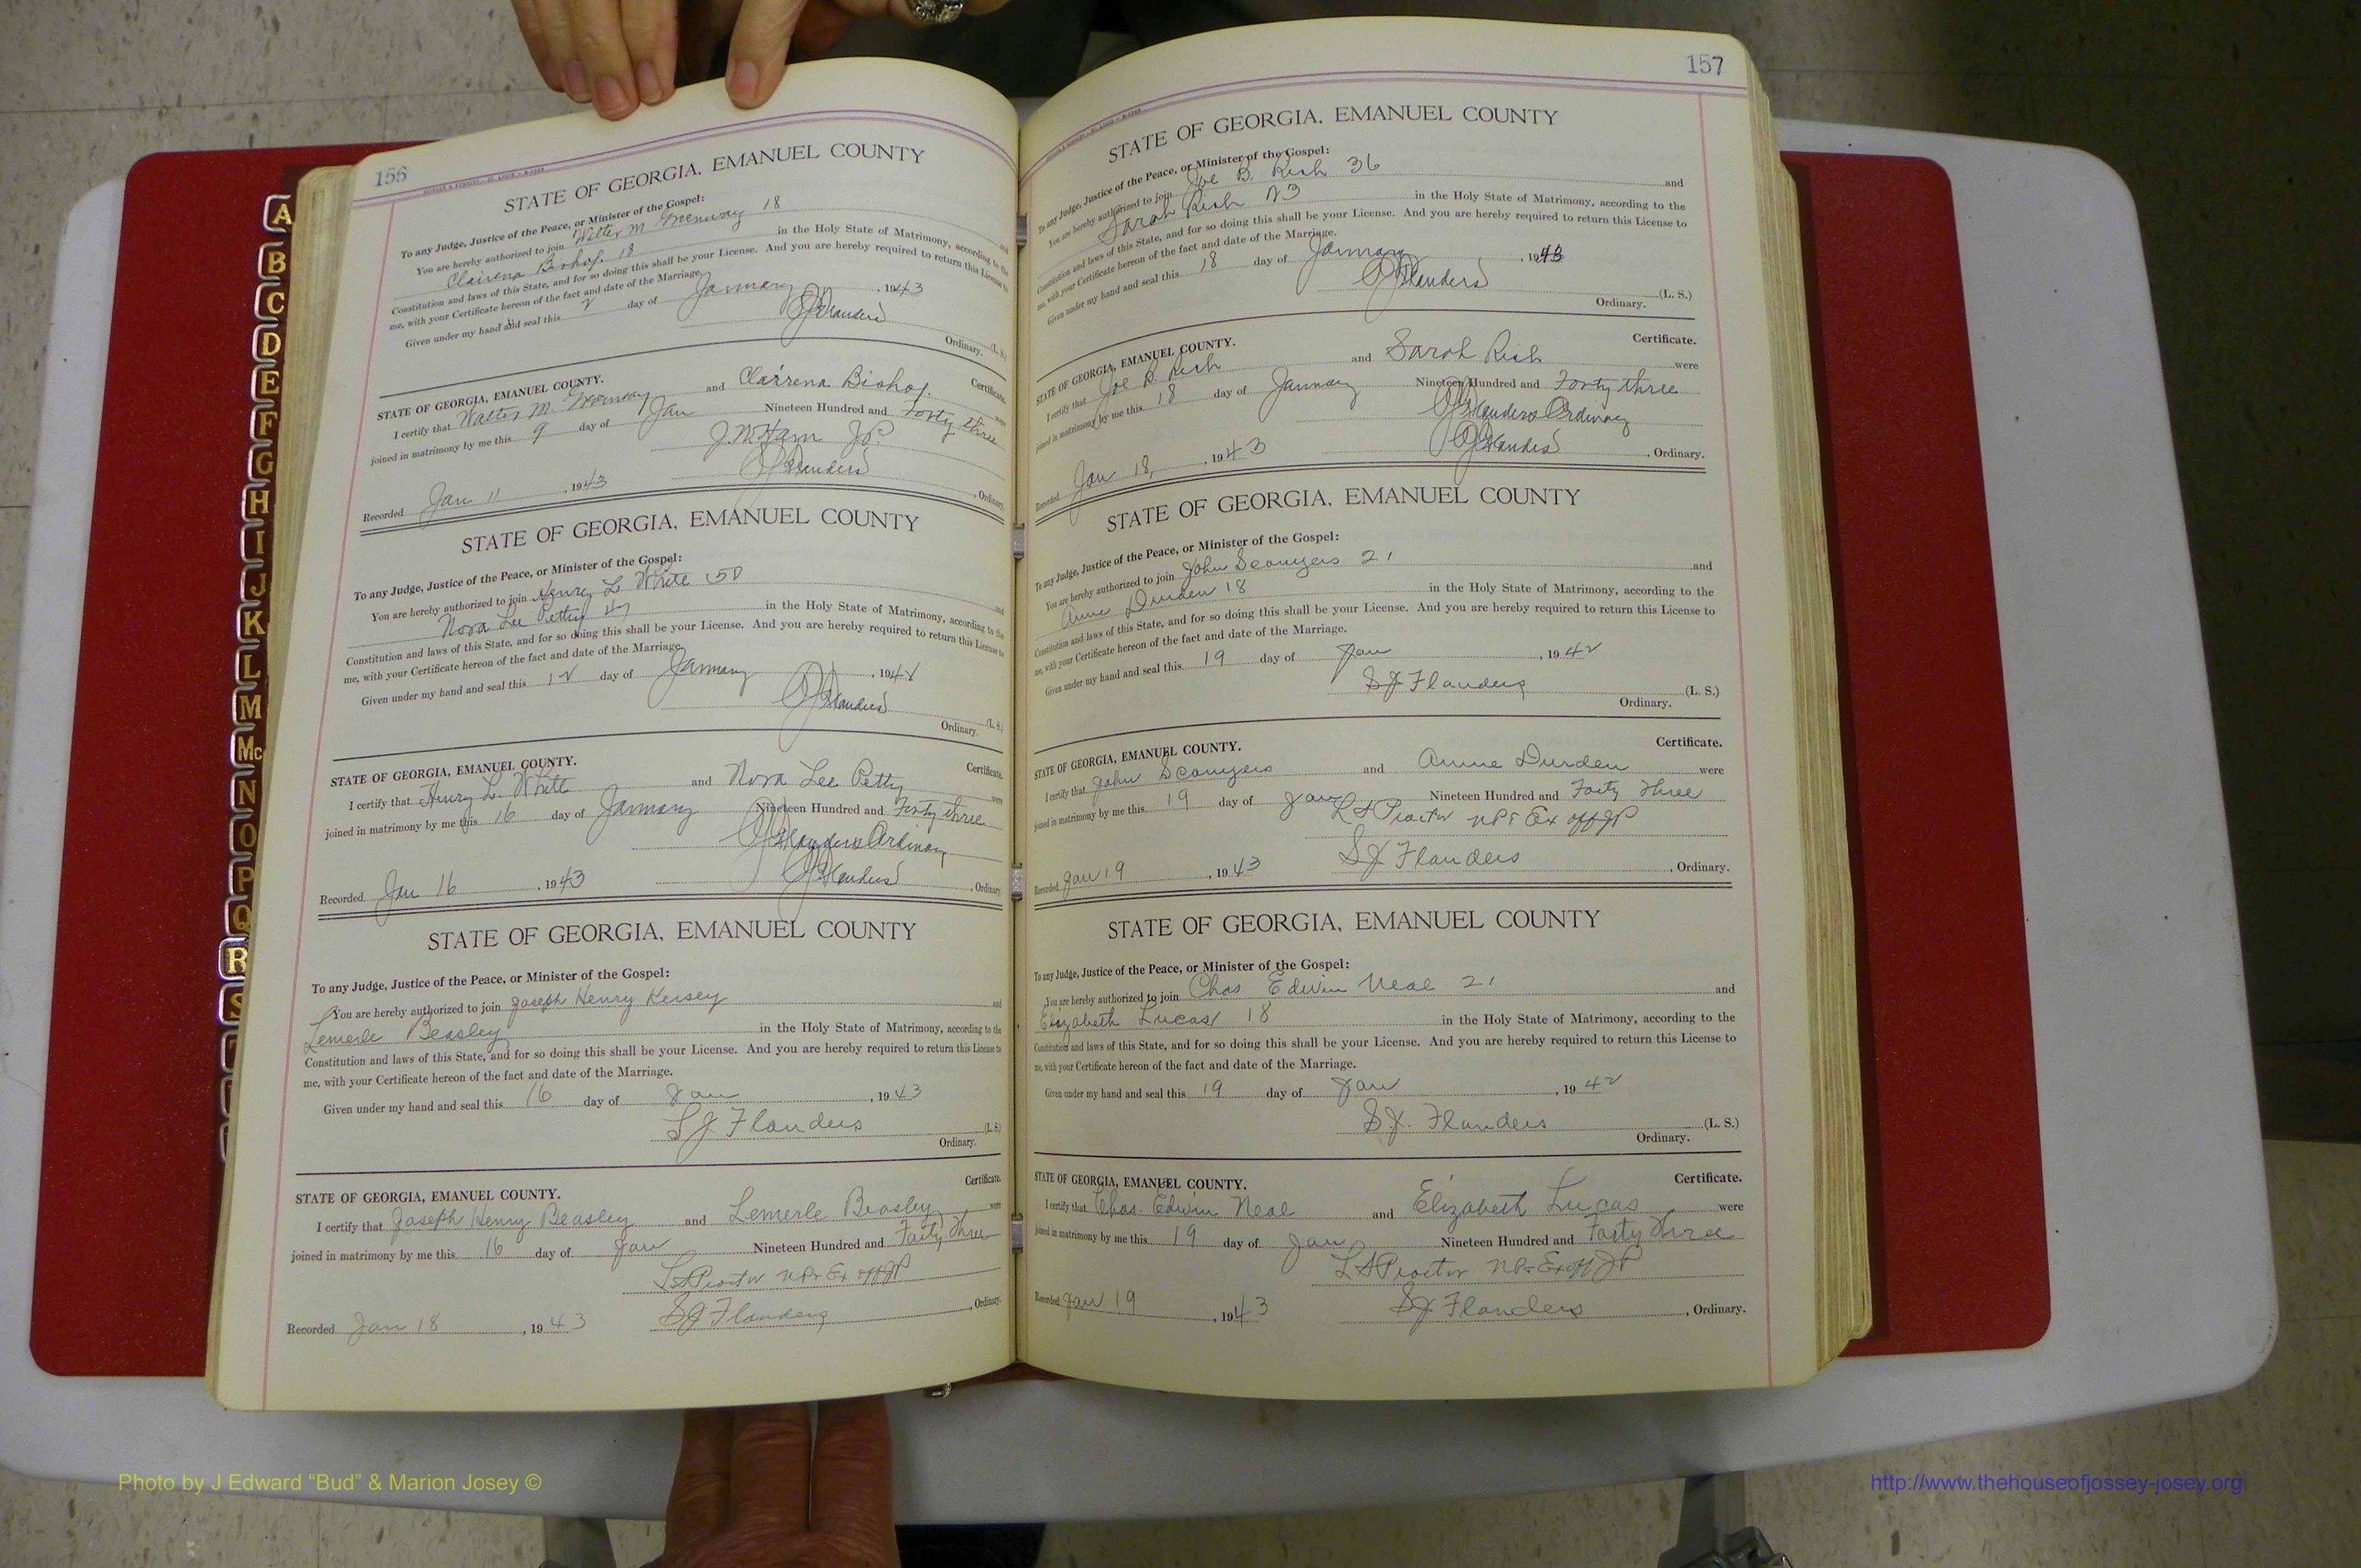 156
STATE OF GEORGIA, EMANUEL COUNTY
To any Judge, Justice of the Peace, or Minister of the Gospel:
You are hereby authorized to join Walter M 18 and
Clairena Bishop 18 in the Holy State of Matrimony, according to the
Constitution and laws of this State, and for so doing this shall be your License. And you are hereby required to return this License to
me, with your Certificate hereon of the fact and date of the Marriage.
Given under my hand and seal this 2 day of January, 1943
Flanders (L. S.)
Ordinary.
STATE OF GEORGIA, EMANUEL COUNTY. Certificate.
I certify that Walter M. and Clairena Bishop were
joined in matrimony by me this 9 day of Jan Nineteen Hundred and Forty three
J.P.
Flanders
Recorded Jan 11, 1943, Ordinary.
STATE OF GEORGIA, EMANUEL COUNTY
To any Judge, Justice of the Peace, or Minister of the Gospel:
You are hereby authorized to join Henry L White 50 and
Nora Lee Petty in the Holy State of Matrimony, according to the
Constitution and laws of this State, and for so doing this shall be your License. And you are hereby required to return this License to
me, with your Certificate hereon of the fact and date of the Marriage.
Given under my hand and seal this 12 day of January, 194
Flanders (L. S.)
Ordinary.
STATE OF GEORGIA, EMANUEL COUNTY. Certificate.
I certify that Henry L. White and Nora Lee Petty were
joined in matrimony by me this 16 day of January Nineteen Hundred and Forty three
Flanders Ordinary
Flanders
Recorded Jan 16, 1943, Ordinary.
STATE OF GEORGIA, EMANUEL COUNTY
To any Judge, Justice of the Peace, or Minister of the Gospel:
You are hereby authorized to join Joseph Henry Kersey and
Lemerle Beasley in the Holy State of Matrimony, according to the
Constitution and laws of this State, and for so doing this shall be your License. And you are hereby required to return this License to
me, with your Certificate hereon of the fact and date of the Marriage.
Given under my hand and seal this 16 day of Jan, 1943
S J Flanders (L. S.)
Ordinary.
STATE OF GEORGIA, EMANUEL COUNTY. Certificate.
I certify that Joseph Henry Beasley and Lemerle Beasley were
joined in matrimony by me this 16 day of Jan Nineteen Hundred and Forty Three
L S Proctor N P & Ex off J P
S J Flanders
Recorded Jan 18, 1943, Ordinary.
157
STATE OF GEORGIA, EMANUEL COUNTY
To any Judge, Justice of the Peace, or Minister of the Gospel:
You are hereby authorized to join Joe B. Rich 36 and
Sarah Rich 23 in the Holy State of Matrimony, according to the
Constitution and laws of this State, and for so doing this shall be your License. And you are hereby required to return this License to
me, with your Certificate hereon of the fact and date of the Marriage.
Given under my hand and seal this 18 day of January, 1943
Flanders (L. S.)
Ordinary.
STATE OF GEORGIA, EMANUEL COUNTY. Certificate.
I certify that Joe B. Rich and Sarah Rich were
joined in matrimony by me this 18 day of January Nineteen Hundred and Forty three
Flanders Ordinary
Flanders
Recorded Jan 18, 1943, Ordinary.
STATE OF GEORGIA, EMANUEL COUNTY
To any Judge, Justice of the Peace, or Minister of the Gospel:
You are hereby authorized to join John Scowyers 21 and
Anne Durden 18 in the Holy State of Matrimony, according to the
Constitution and laws of this State, and for so doing this shall be your License. And you are hereby required to return this License to
me, with your Certificate hereon of the fact and date of the Marriage.
Given under my hand and seal this 19 day of Jan, 1942
S J Flanders (L. S.)
Ordinary.
STATE OF GEORGIA, EMANUEL COUNTY. Certificate.
I certify that John Scowyers and Anne Durden were
joined in matrimony by me this 19 day of Jan Nineteen Hundred and Forty Three
L S Proctor N P & Ex off J P
S J Flanders
Recorded Jan 19, 1943, Ordinary.
STATE OF GEORGIA, EMANUEL COUNTY
To any Judge, Justice of the Peace, or Minister of the Gospel:
You are hereby authorized to join Chas Edwin Neal 21 and
Elizabeth Lucas 18 in the Holy State of Matrimony, according to the
Constitution and laws of this State, and for so doing this shall be your License. And you are hereby required to return this License to
me, with your Certificate hereon of the fact and date of the Marriage.
Given under my hand and seal this 19 day of Jan, 1942
S. J. Flanders (L. S.)
Ordinary.
STATE OF GEORGIA, EMANUEL COUNTY. Certificate.
I certify that Chas. Edwin Neal and Elizabeth Lucas were
joined in matrimony by me this 19 day of Jan Nineteen Hundred and Forty Three
L S Proctor N P & Ex off J P
S J Flanders
Recorded Jan 19, 1943, Ordinary.
A
B
C
D
E
F
G
H
I
J
K
L
M
Mc
N
O
P
Q
R
S
T
Photo by J Edward “Bud” & Marion Josey ©
http://www.thehouseofjossey-josey.org